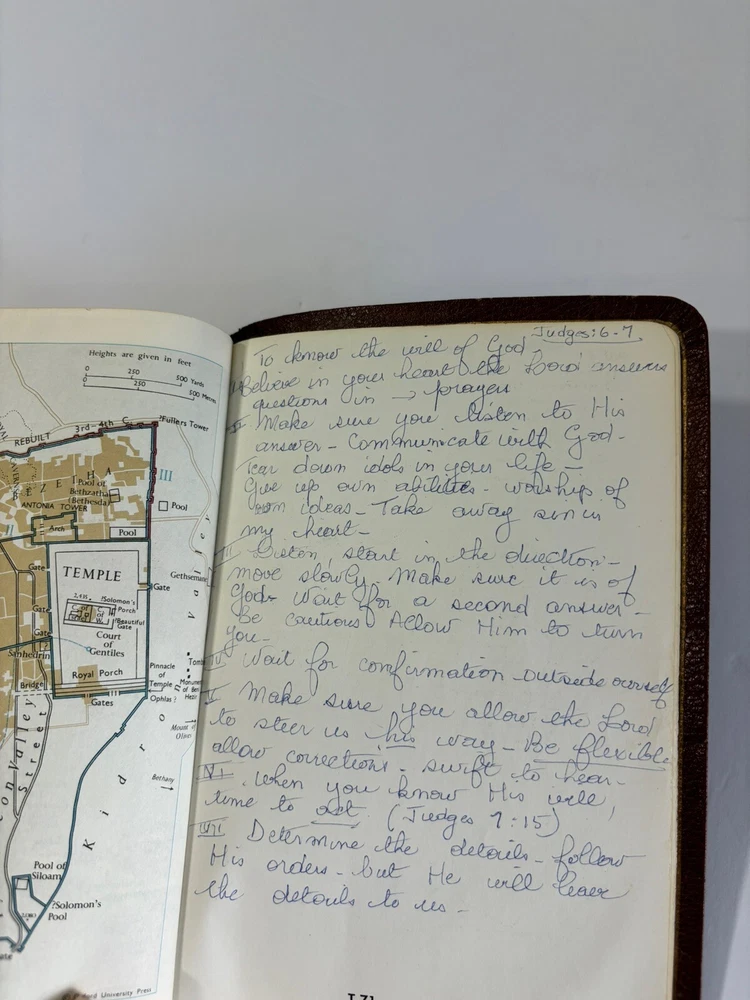 Heights are given in feet
0 250 500 Yards
0 250 500 Metres
REBUILT 3rd-4th C.
?Fullers Tower
BEZETHA
III
Pool of
Bethzatha
(Bethesda)
ANTONIA TOWER
Pool
II
Arch
Pool
Gate
TEMPLE
Gethsemane
Gate
Gate
?Solomon's
Porch
?Beautiful
Gate
Court
of
Gentiles
Sanhedrin
Royal Porch
Pinnacle
of
Temple
Bridge
Gates
Ophlas?
Mount of
Olives
Bethany
Valley
Street
Kidron
Pool of
Siloam
?Solomon's
Pool
University Press
Judges: 6-7
To know the will of God
Believe in your heart the Lord answers
questions in → prayers
II Make sure you listen to His
answer - Communicate with God -
Tear down idols in your life -
Give up own abilities - worship of
own ideas - Take away sin in
my heart -
III Listen, start in the direction -
move slowly. Make sure it is of
God - Wait for a second answer -
Be cautious Allow Him to turn
you -
IV Wait for confirmation - outside ourself
V Make sure you allow the Lord
to steer us his way - Be flexible
allow corrections - swift to hear -
VI When you know His will,
time to act. (Judges 7:15)
VII Determine the details - follow
His orders - but He will leave
the details to us -